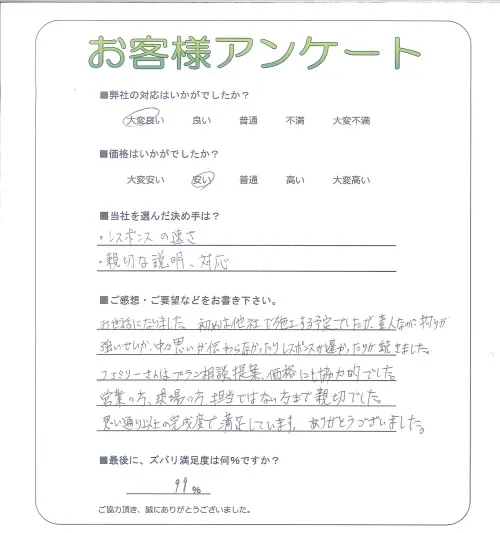 お客様アンケート
■弊社の対応はいかがでしたか？
大変良い 良い 普通 不満 大変不満
■価格はいかがでしたか？
大変安い 安い 普通 高い 大変高い
■当社を選んだ決め手は？
・レスポンスの速さ
・親切な説明、対応
■ご感想・ご要望などをお書き下さい。
お世話になりました。初めは他社で施工する予定でしたが、素人なのに拘りが
強いせいか、中々思いが伝わらなかったりレスポンスが遅かったりが続きました。
ファミリーさんはプラン相談、提案、価格にも協力的でした。
営業の方、現場の方、担当ではない方まで親切でした。
思い通り以上の完成度で満足しています。ありがとうございました。
■最後に、ズバリ満足度は何%ですか？
99%
ご協力頂き、誠にありがとうございました。